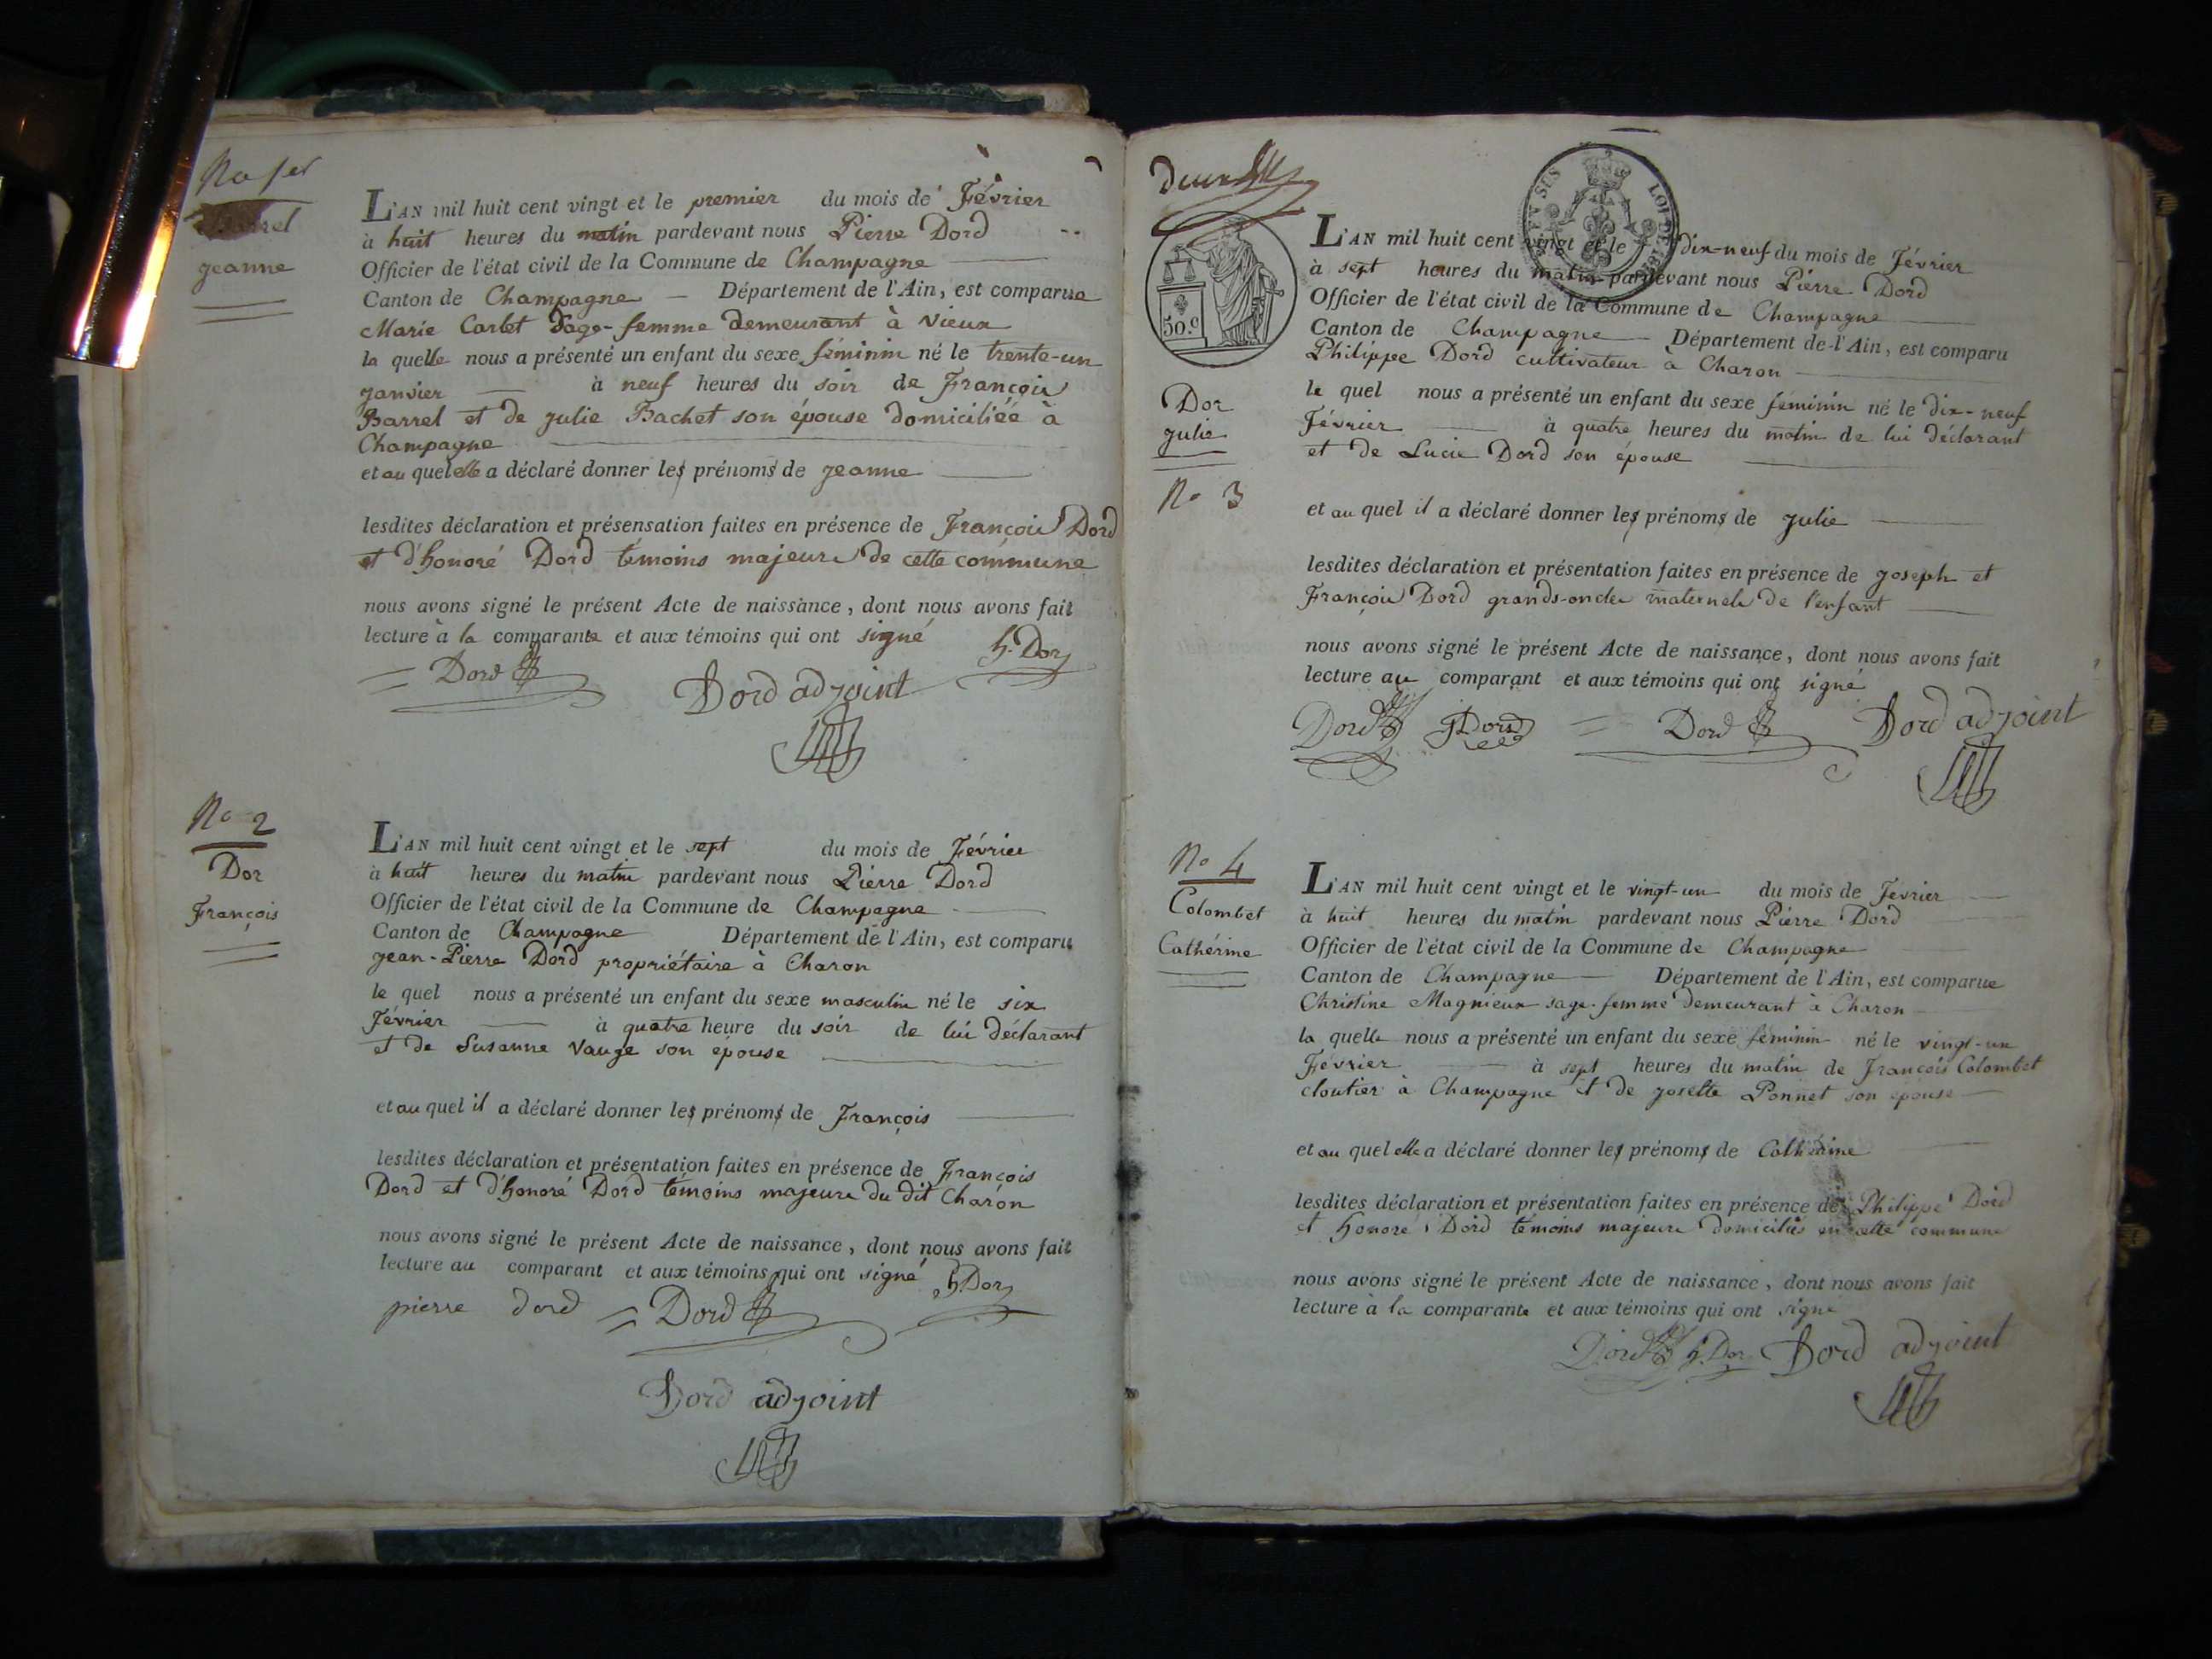 No 1er
Barrel
jeanne
L'AN mil huit cent vingt et le premier du mois de Février
à huit heures du matin pardevant nous Pierre Dord
Officier de l'état civil de la Commune de Champagne
Canton de Champagne Département de l'Ain, est comparue
Marie Carlet Sage-femme demeurant à Vieux
la quelle nous a présenté un enfant du sexe féminin né le trente-un
janvier à neuf heures du soir de François
Barrel et de julie Bachet son épouse domiciliée à
Champagne
et au quel elle a déclaré donner les prénoms de jeanne
lesdites déclaration et présensation faites en présence de François Dord
et d'honoré Dord témoins majeurs de cette commune
nous avons signé le présent Acte de naissance, dont nous avons fait
lecture à la comparante et aux témoins qui ont signé
Dord h. Dor
Dord adjoint
No 2
Dor
François
L'AN mil huit cent vingt et le sept du mois de Février
à huit heures du matin pardevant nous Pierre Dord
Officier de l'état civil de la Commune de Champagne
Canton de Champagne Département de l'Ain, est comparu
jean-Pierre Dord propriétaire à Charon
le quel nous a présenté un enfant du sexe masculin né le six
Février à quatre heure du soir de lui déclarant
et de Susanne Vauge son épouse
et au quel il a déclaré donner les prénoms de François
lesdites déclaration et présentation faites en présence de François
Dord et d'honoré Dord témoins majeurs du dit Charon
nous avons signé le présent Acte de naissance, dont nous avons fait
lecture au comparant et aux témoins qui ont signé
pierre dord Dord h Dor
Dord adjoint
50.c
LOI DE
Dor
julie
No 3
L'AN mil huit cent vingt et le dix-neuf du mois de Février
à sept heures du matin pardevant nous Pierre Dord
Officier de l'état civil de la Commune de Champagne
Canton de Champagne Département de l'Ain, est comparu
Philippe Dord cultivateur à Charon
le quel nous a présenté un enfant du sexe féminin né le dix-neuf
Février à quatre heures du matin de lui déclarant
et de Lucie Dord son épouse
et au quel il a déclaré donner les prénoms de julie
lesdites déclaration et présentation faites en présence de joseph et
François Dord grands-oncles maternels de l'enfant
nous avons signé le présent Acte de naissance, dont nous avons fait
lecture au comparant et aux témoins qui ont signé
Dord jDord Dord Dord adjoint
No 4
Colombet
Cathérine
L'AN mil huit cent vingt et le vingt-un du mois de Février
à huit heures du matin pardevant nous Pierre Dord
Officier de l'état civil de la Commune de Champagne
Canton de Champagne Département de l'Ain, est comparue
Christine Magnieux sage-femme demeurant à Charon
la quelle nous a présenté un enfant du sexe féminin né le vingt-un
Février à sept heures du matin de François Colombet
cloutier à Champagne et de josette Ponnet son épouse
et au quel elle a déclaré donner les prénoms de Cathérine
lesdites déclaration et présentation faites en présence de Philippe Dord
et honoré Dord témoins majeurs domiciliés en cette commune
nous avons signé le présent Acte de naissance, dont nous avons fait
lecture à la comparante et aux témoins qui ont signé
Dord h. Dor Dord adjoint